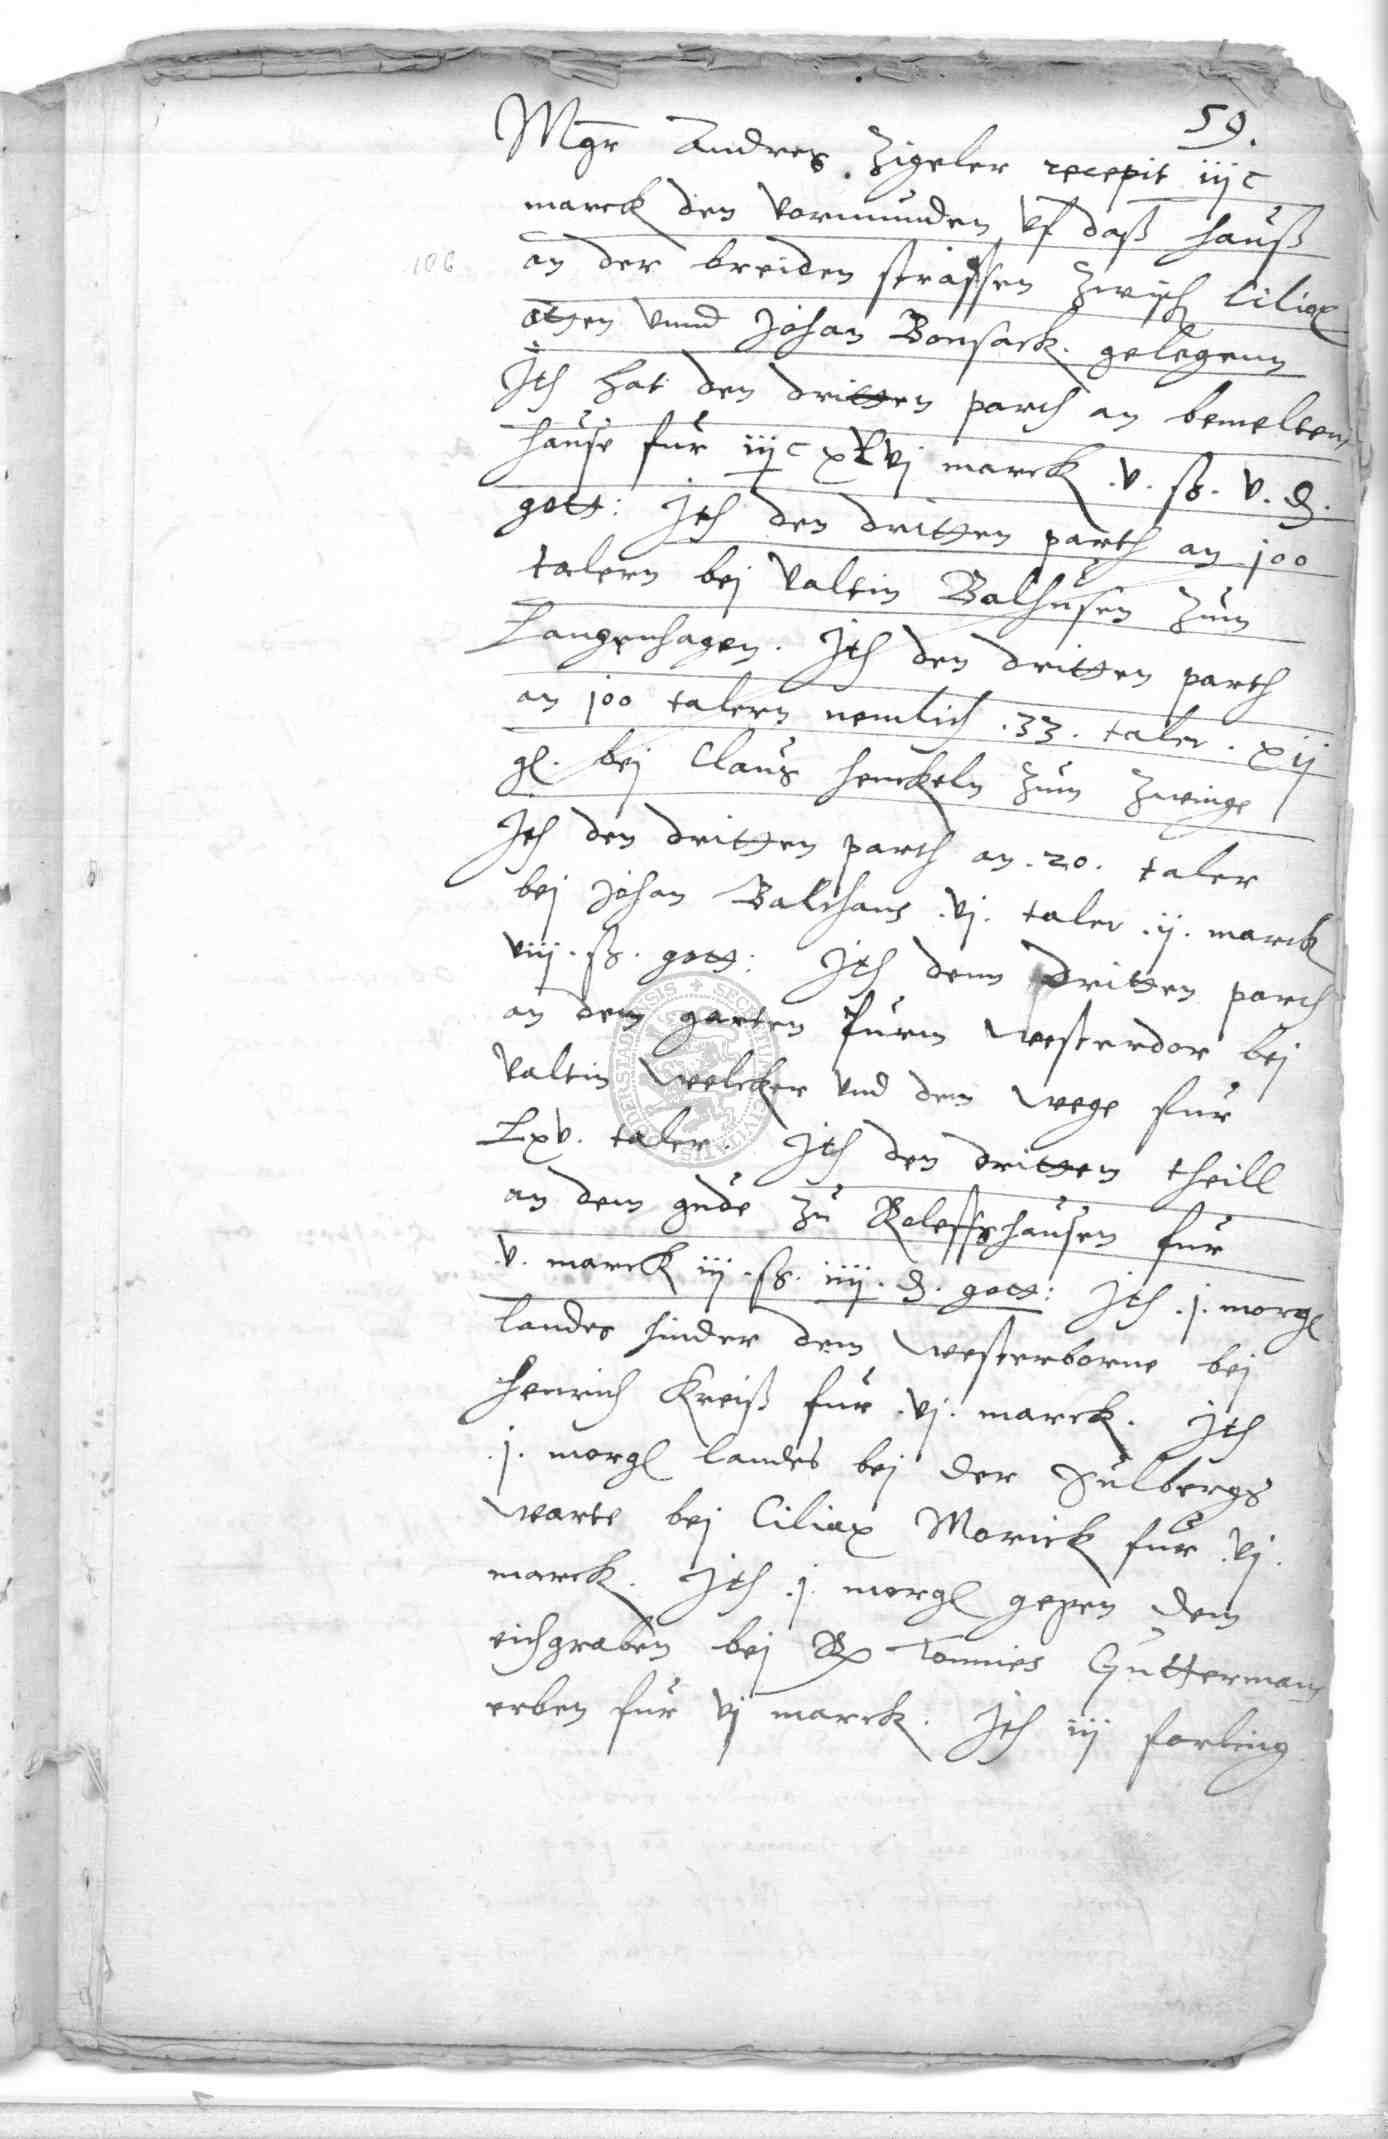 59.
Mgr Andres Zigeler recepit iijc
marck den vormunden vf daß hauß
106
an der breiden strassen zwisch Ciliax
otzen vnnd Johan Bonsack. gelegenn
Jth hat den dritten parth an bemelten
hause fur iijc xlvj marck .v. ß. v. d.
gott: Jth den dritten parth an 100
talern bej Valtin Balhusen zum
Langenhagen. Jth den dritten parth
an 100 talern nemlich .33. taler. xij
gl. bej Claus henckeln zum Zwinge
Jth den dritten parth an .20. taler
bej Johan Balchaus .vj. taler .ij. marck
viij. ß. gott: Jth denn dritten parth
an dem garten furm westerdor bej
Valtin welcker vnd dem wege fur
Lxv. taler. Jth den dritten theill
an dem gude zu Roleffshausen fur
.v. marck iij. ß. iiij. d. gott: Jth .j. morgl
landes hinder dem westerborne bej
Henrich Kreiß fur .vj. marck. Jth
.j. morgl landes bej der Sulbergs
warte bej Ciliax Morick fur .vj.
marck. Jth .j. morgl gegen dem
eichgraben bej Tonnies Gutterman
erben fur vj marck. Jth iij forling
SECRETUM CIVITATIS DUDERSTADENSIS